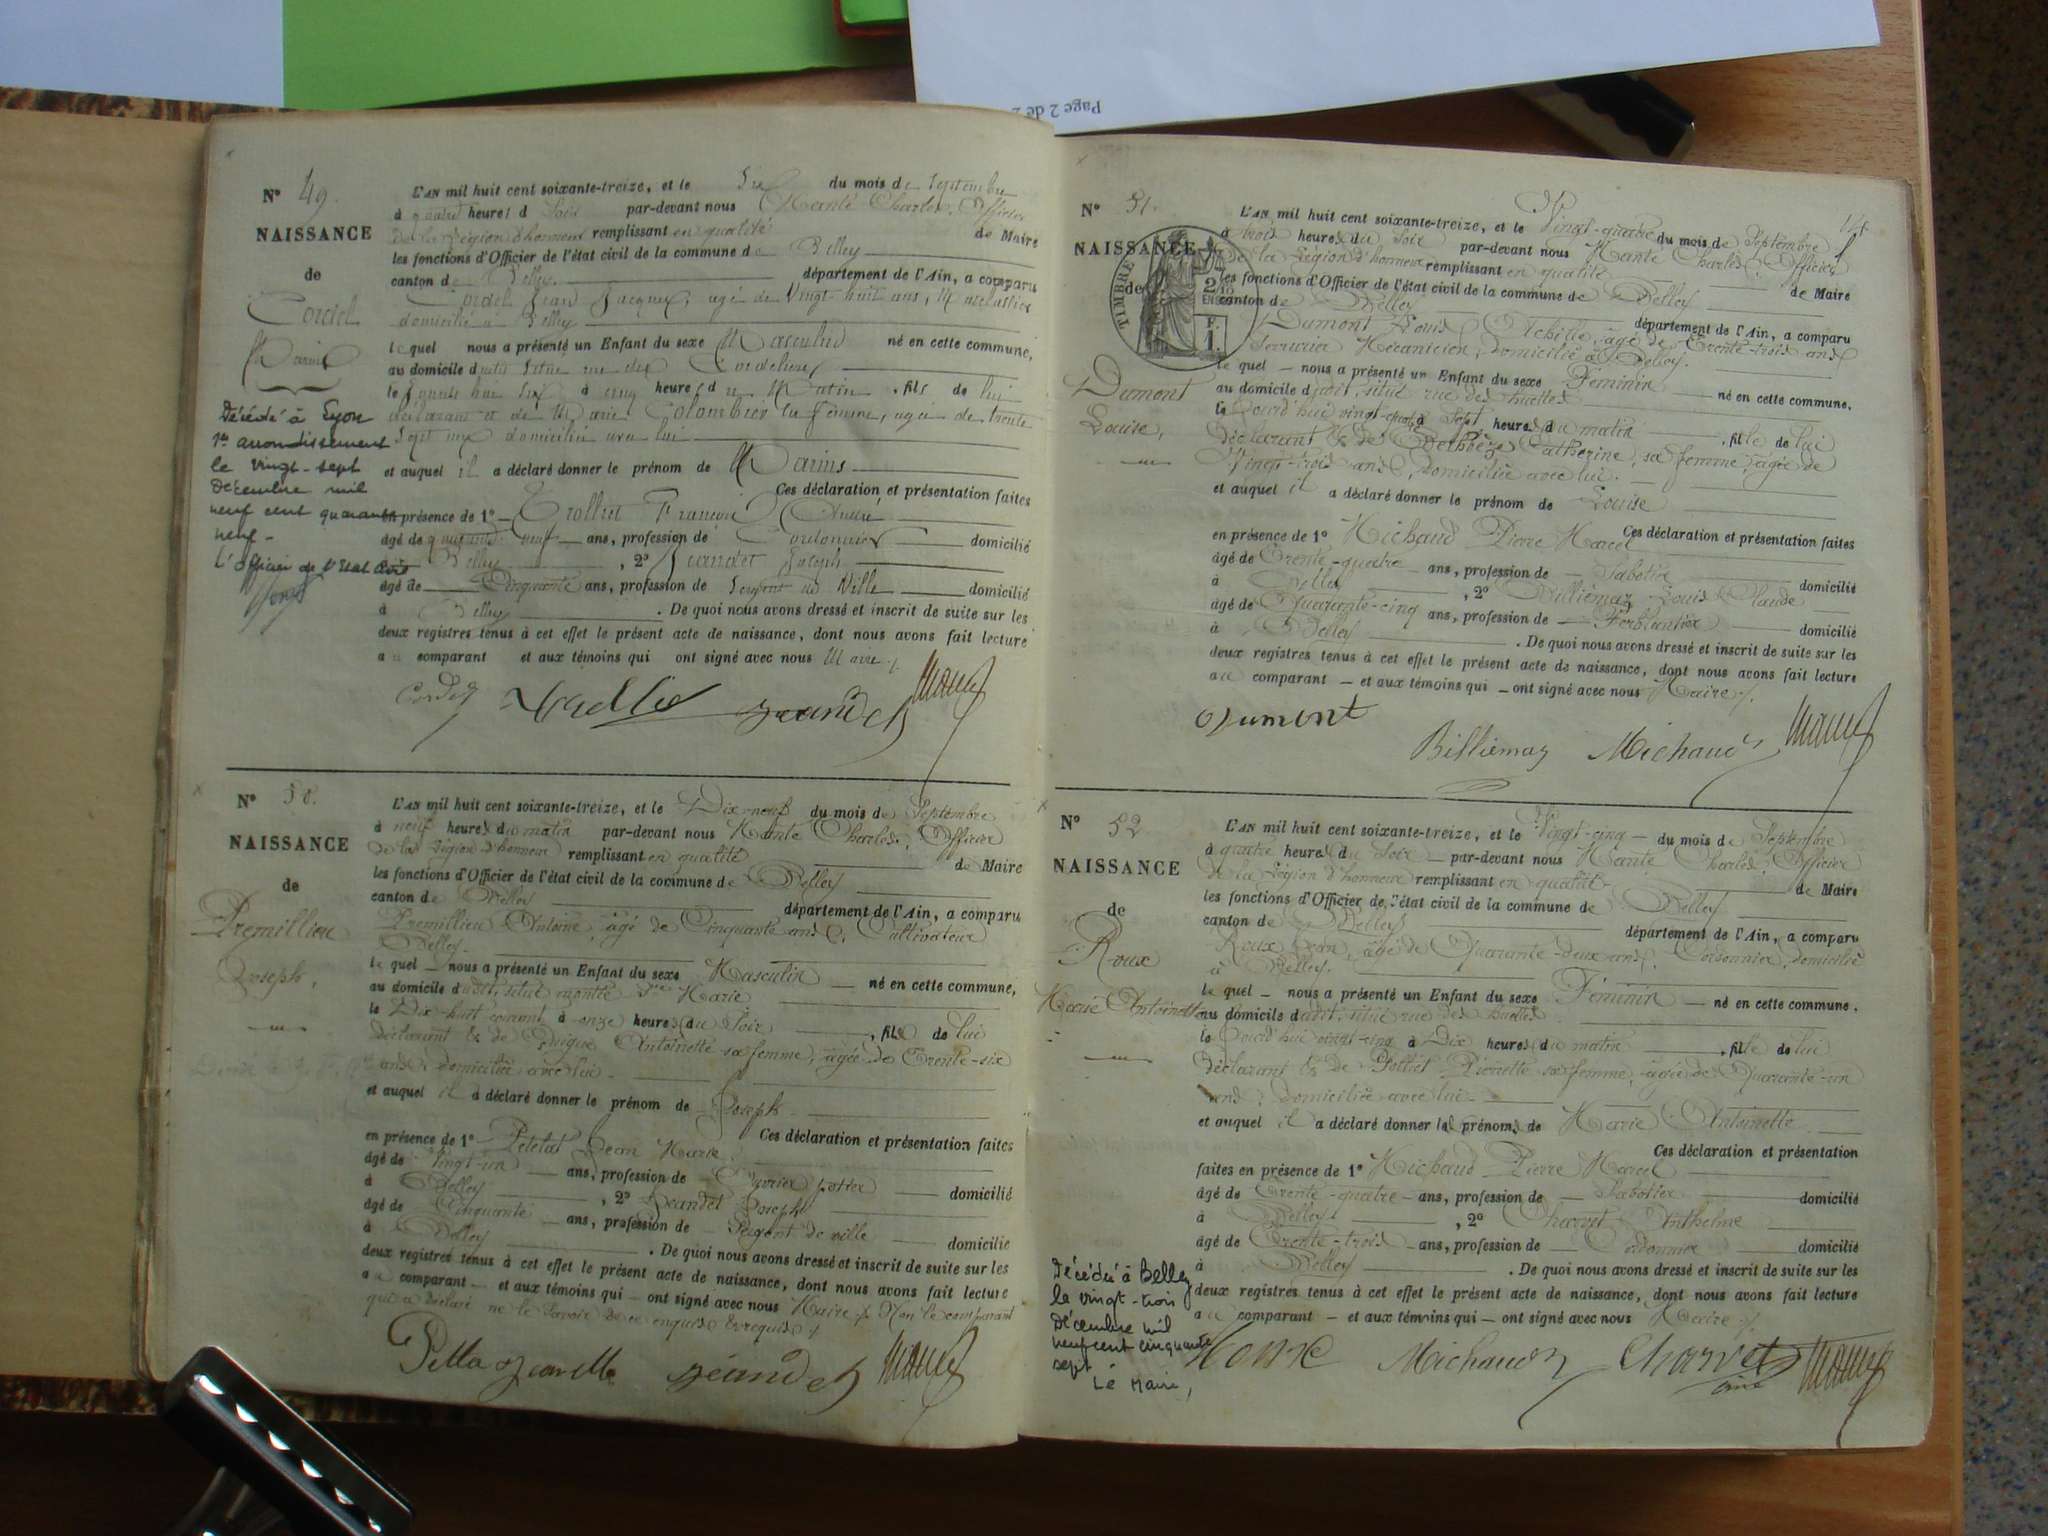 Page 2 de 2
N° 49.
NAISSANCE
de
Cordel
Marius
Décédé à Lyon
1er arrondissement
le vingt-sept
décembre mil
neuf cent quarante
neuf -
L'officier de l'Etat civil
L'AN mil huit cent soixante-treize, et le du mois de Septembre
à quatre heures d Soir par-devant nous Manté Charles, Officier
de la Légion d'honneur remplissant en qualité de Maire
les fonctions d'Officier de l'état civil de la commune de Belley
canton de Belley département de l'Ain, a comparu
Cordel Jean Jacques, agé de Vingt huit ans,
domicilié à Belley
lequel nous a présenté un Enfant du sexe Masculin né en cette commune,
au domicile dudit situé rue des Cordeliers
le jourd'hui à cinq heures du Matin, fils de lui
déclarant et de Marie Colombier sa femme, agée de trente
sept ans domiciliée avec lui
et auquel il a déclaré donner le prénom de Marius
Ces déclaration et présentation faites
en présence de 1° Trolliet François
âgé de quarante neuf ans, profession de Cordonnier domicilié
à Belley, 2° Jeandet Joseph
âgé de Cinquante ans, profession de Sergent de Ville domicilié
à Belley. De quoi nous avons dressé et inscrit de suite sur les
deux registres tenus à cet effet le présent acte de naissance, dont nous avons fait lecture
au comparant et aux témoins qui ont signé avec nous Maire ./.
Cordel Jeandet Manté
N° 50.
NAISSANCE
de
Premillieu
Joseph,
L'AN mil huit cent soixante-treize, et le Dix-neuf du mois de Septembre
à neuf heures du matin par-devant nous Manté Charles, Officier
de la Légion d'honneur remplissant en qualité de Maire
les fonctions d'Officier de l'état civil de la commune de Belley
canton de Belley département de l'Ain, a comparu
Premillieu Antoine, âgé de Cinquante ans, Cultivateur
Belley
le quel nous a présenté un Enfant du sexe Masculin né en cette commune,
au domicile dudit, situé montée Ste Marie
le Dix-huit courant à onze heures du Soir, fils de lui
déclarant & de Antoinette sa femme, âgée de Trente-six
ans, domiciliée avec lui
et auquel il a déclaré donner le prénom de Joseph
Ces déclaration et présentation faites
en présence de 1° Petelat Jean Marie
âgé de Vingt-un ans, profession de Ouvrier potier domicilié
à Belley, 2° Jeandet Joseph
âgé de Cinquante ans, profession de Sergent de ville domicilié
à Belley. De quoi nous avons dressé et inscrit de suite sur les
deux registres tenus à cet effet le présent acte de naissance, dont nous avons fait lecture
au comparant et aux témoins qui ont signé avec nous Maire ./. Non le comparant
qui a déclaré ne le savoir de ce enquis & requis ./.
Jeandet Manté
14
N° 51.
NAISSANCE
de
TIMBRE
2
F.
1.
Dumont
Louise,
L'AN mil huit cent soixante-treize, et le Vingt-quatre du mois de Septembre
à trois heures du Soir par-devant nous Manté Charles, Officier
de la Légion d'honneur remplissant en qualité de Maire
les fonctions d'Officier de l'état civil de la commune de Belley
canton de Belley département de l'Ain, a comparu
Dumont Louis Achille, âgé de Trente-trois ans
Serrurier Mécanicien, domicilié à Belley.
le quel nous a présenté un Enfant du sexe Féminin né en cette commune,
au domicile dudit, situé rue des Buettes
le Jourd'hui vingt-quatre à Sept heures du matin, fille de lui
déclarant & de Catherine, sa femme, âgée de
Vingt-trois ans, domiciliée avec lui.
et auquel il a déclaré donner le prénom de Louise
Ces déclaration et présentation faites
en présence de 1° Michaud Pierre Marcel
âgé de Trente-quatre ans, profession de Sabotier domicilié
à Belley, 2° Billiémaz Louis Claude
âgé de Quarante-cinq ans, profession de Ferblantier domicilié
à Belley. De quoi nous avons dressé et inscrit de suite sur les
deux registres tenus à cet effet le présent acte de naissance, dont nous avons fait lecture
au comparant et aux témoins qui ont signé avec nous Maire ./.
Dumont Billiemaz Michaud Manté
N° 52
NAISSANCE
de
Roux
Marie Antoinette
Décédée à Belley
le vingt-trois
Décembre mil
neuf cent cinquante
sept
Le Maire,
L'AN mil huit cent soixante-treize, et le Vingt-cinq du mois de Septembre
à quatre heures du Soir par-devant nous Manté Charles, Officier
de la Légion d'honneur remplissant en qualité de Maire
les fonctions d'Officier de l'état civil de la commune de Belley
canton de Belley département de l'Ain, a comparu
Roux Jean, âgé de Quarante-deux ans, domicilié
à Belley.
le quel nous a présenté un Enfant du sexe Féminin né en cette commune,
au domicile dudit, situé rue des Buettes
le Jourd'hui vingt-cinq à Dix heures du matin, fille de lui
déclarant & de Pierrette sa femme, âgée de Quarante-un
ans, domiciliée avec lui
et auquel il a déclaré donner les prénoms de Marie Antoinette
Ces déclaration et présentation
faites en présence de 1° Michaud Pierre Marcel
âgé de Trente-quatre ans, profession de Sabotier domicilié
à Belley, 2° Charvet Anthelme
âgé de Trente-trois ans, profession de Cordonnier domicilié
à Belley. De quoi nous avons dressé et inscrit de suite sur les
deux registres tenus à cet effet le présent acte de naissance, dont nous avons fait lecture
au comparant et aux témoins qui ont signé avec nous Maire ./.
Michaud Charvet Manté